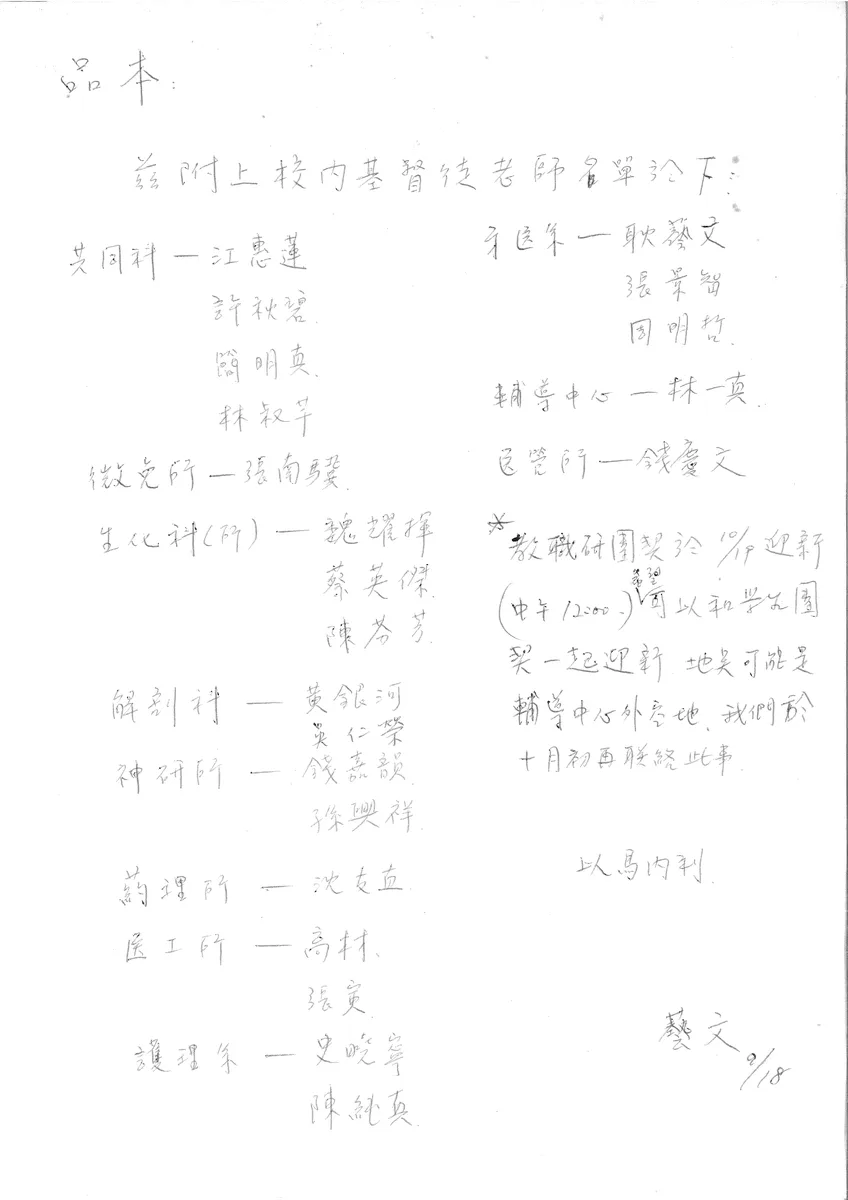 品本：
茲附上校内基督徒老師名單於下：
共同科 — 江惠蓮
許秋碧
簡明真
林淑芊
微免所 — 張南驥
生化科(所) — 魏耀揮
蔡英傑
陳芬芳
解剖科 — 黃銀河
吳仁榮
神研所 — 錢嘉韻
孫興祥
葯理所 — 沈友直
医工所 — 高材
張寅
護理系 — 史曉寧
陳純真
牙医系 — 耿藝文
張景智
周明哲
輔導中心 — 林一真
医管所 — 錢慶文
教職研團契於 10/19 迎新
(中午12:00) 希望可以和學生團
契一起迎新 地点可能是
輔導中心外空地，我們於
十月初再联絡此事
以馬内利
藝文
9/18